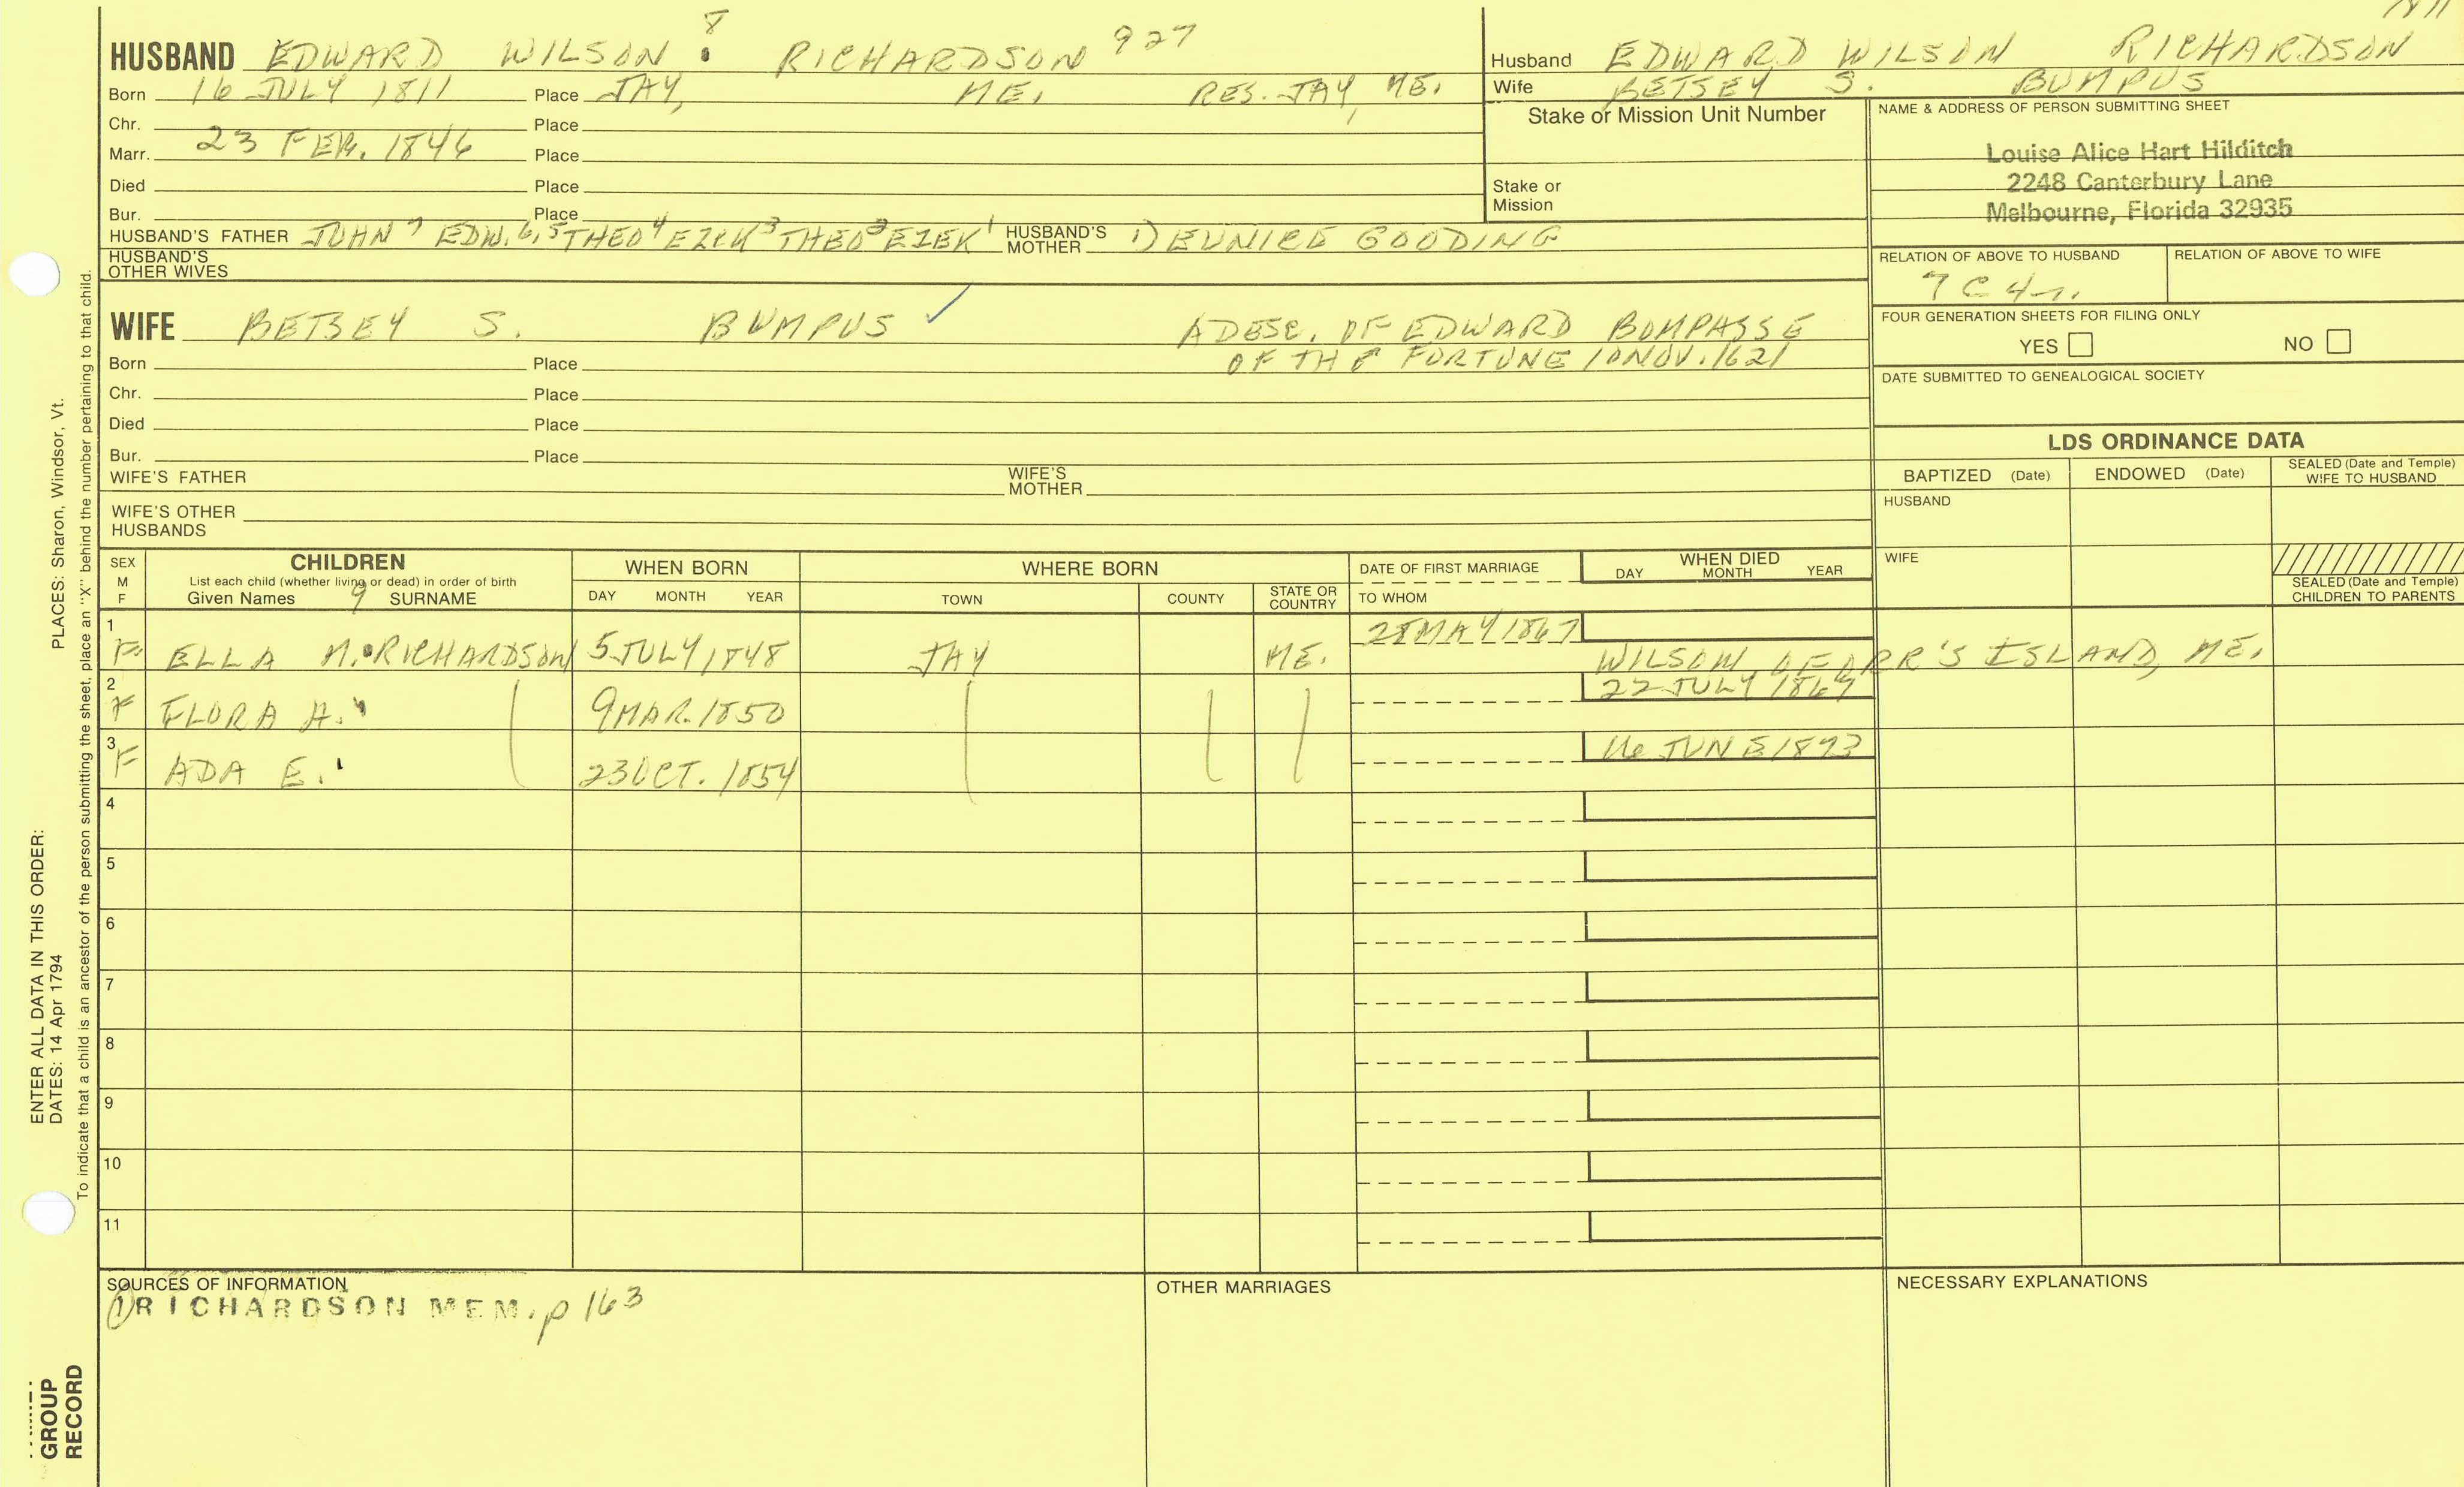 1811
HUSBAND EDWARD WILSON 8 RICHARDSON 927
Born 16 JULY 1811 Place JAY, ME. RES. JAY, ME.
Chr. Place
Marr. 23 FEB. 1846 Place
Died Place
Bur. Place
HUSBAND'S FATHER JOHN 7 EDW. 6,5 THEO 4 EZEK 3 THEO 2 EZEK 1 HUSBAND'S MOTHER 1) EUNICE GOODING
HUSBAND'S OTHER WIVES
Husband EDWARD WILSON RICHARDSON
Wife BETSEY S. BUMPUS
Stake or Mission Unit Number
Stake or Mission
NAME & ADDRESS OF PERSON SUBMITTING SHEET
Louise Alice Hart Hilditch
2248 Canterbury Lane
Melbourne, Florida 32935
RELATION OF ABOVE TO HUSBAND RELATION OF ABOVE TO WIFE
7 C 4 r.
FOUR GENERATION SHEETS FOR FILING ONLY
YES NO
DATE SUBMITTED TO GENEALOGICAL SOCIETY
WIFE BETSEY S. BUMPUS ✓ A DESC. OF EDWARD BOMPASSE
OF THE FORTUNE 10 NOV. 1621
Born Place
Chr. Place
Died Place
Bur. Place
WIFE'S FATHER WIFE'S MOTHER
WIFE'S OTHER HUSBANDS
LDS ORDINANCE DATA
BAPTIZED (Date) ENDOWED (Date) SEALED (Date and Temple) WIFE TO HUSBAND
HUSBAND
WIFE
SEALED (Date and Temple) CHILDREN TO PARENTS
SEX M F CHILDREN WHEN BORN WHERE BORN DATE OF FIRST MARRIAGE WHEN DIED
List each child (whether living or dead) in order of birth
Given Names 9 SURNAME DAY MONTH YEAR TOWN COUNTY STATE OR COUNTRY TO WHOM DAY MONTH YEAR
1 F. ELLA M. RICHARDSON 5 JULY 1848 JAY ME. 28 MAY 1867
WILSON, OF ORR'S ISLAND, ME.
2 F FLORA A. " 9 MAR. 1850 22 JULY 1867
3 F ADA E. " 23 OCT. 1854 16 JUNE 1873
4
5
6
7
8
9
10
11
SOURCES OF INFORMATION
① RICHARDSON MEM. p 163
OTHER MARRIAGES
NECESSARY EXPLANATIONS
ENTER ALL DATA IN THIS ORDER:
DATES: 14 Apr 1794 PLACES: Sharon, Windsor, Vt.
To indicate that a child is an ancestor of the person submitting the sheet, place an "X" behind the number pertaining to that child.
GROUP
RECORD